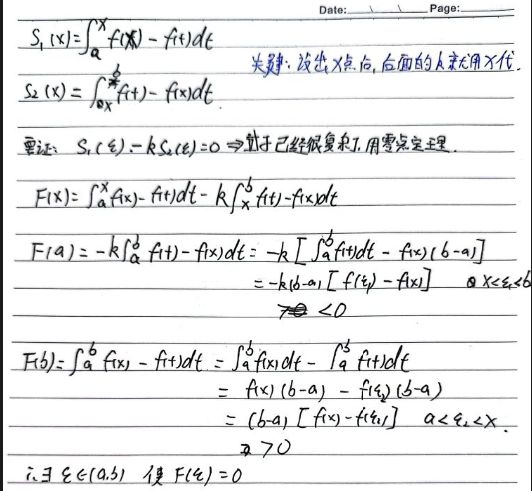 Date: Page:
S₁(x)=∫ₐˣ f(x) - f(t)dt
关键：设出x点后，后面的 用x代.
S₂(x)=∫ₓᵇ f(t) - f(x)dt
要证: S₁(ξ) - kS₂(ξ)=0 ⇒ 已经很复杂了,用零点定理.
F(x)=∫ₐˣ f(x) - f(t)dt - k∫ₓᵇ f(t) - f(x)dt
F(a)= -k∫ₐᵇ f(t) - f(x)dt = -k[∫ₐᵇ f(t)dt - f(x)(b-a)]
= -k(b-a)[f(ξ₁) - f(x)] x<ξ₁<b
<0
F(b)=∫ₐᵇ f(x) - f(t)dt = ∫ₐᵇ f(x)dt - ∫ₐᵇ f(t)dt
= f(x)(b-a) - f(ξ₂)(b-a)
= (b-a)[f(x) - f(ξ₂)] a<ξ₂<x.
>0
∴∃ ξ∈(a,b) 使 F(ξ)=0